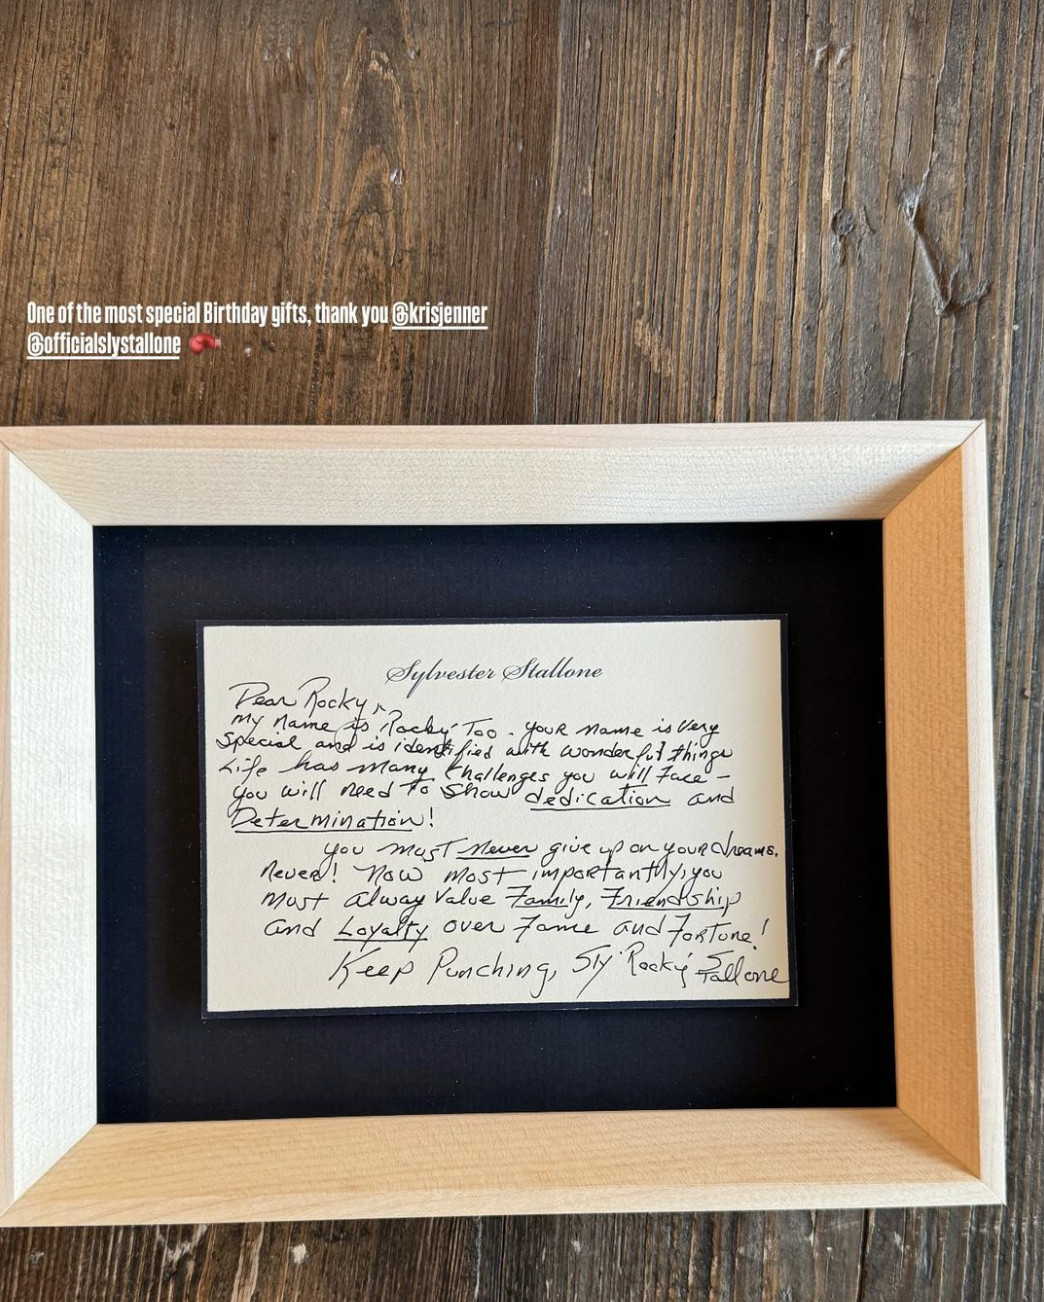 One of the most special Birthday gifts, thank you @krisjenner
@officialslystallone
Sylvester Stallone
Dear Rocky,
my name is Rocky Too. your name is very
Special and is identified with wonderful things
Life has many Challenges you will Face –
you will need to Show dedication and
Determination!
you must never give up on your dreams.
Never! Now most importantly, you
must alway value Family, Friendship
and Loyalty over Fame and Fortune!
Keep Punching, Sly 'Rocky' Stallone